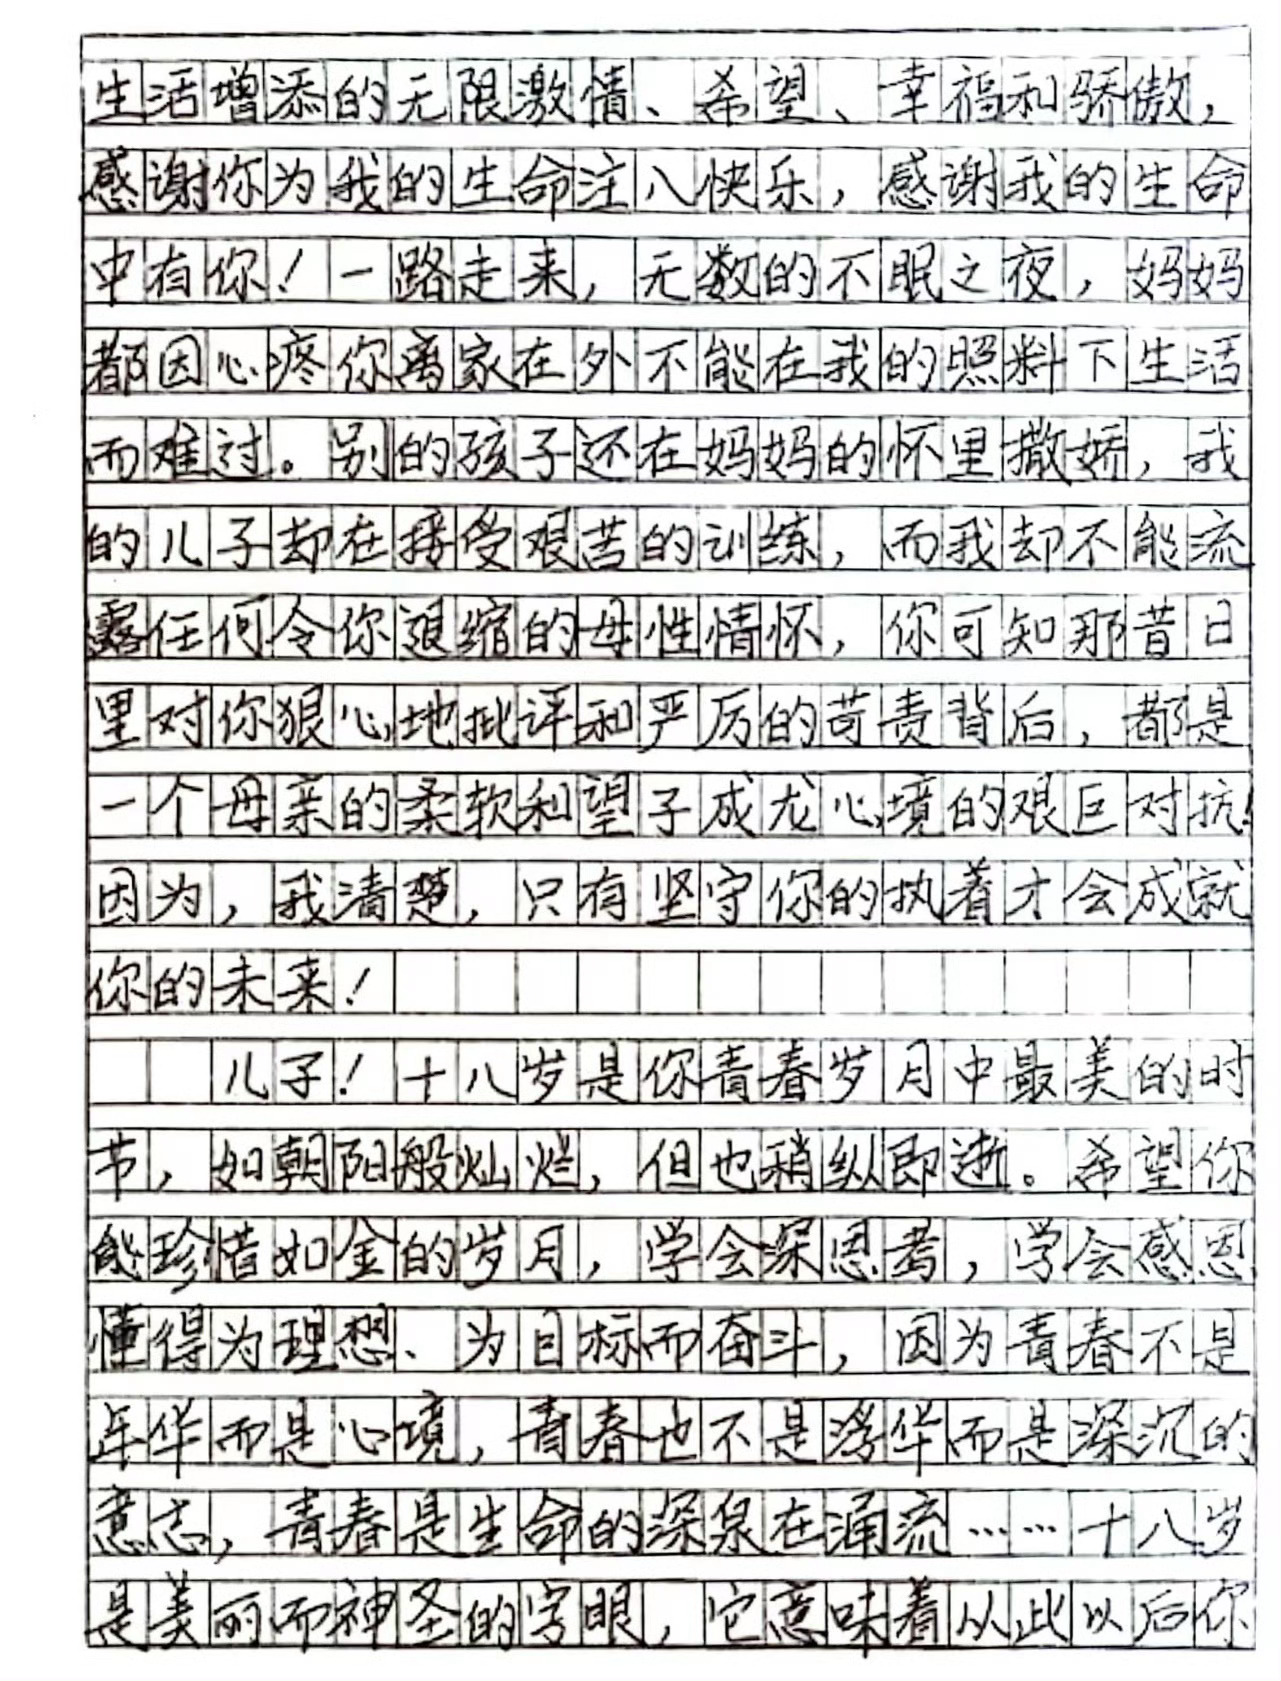 生活增添的无限激情、希望、幸福和骄傲，
感谢你为我的生命注八快乐，感谢我的生命
中有你！一路走来，无数的不眠之夜，妈妈
都因心疼你离家在外不能在我的照料下生活
而难过。别的孩子还在妈妈的怀里撒娇，我
的儿子却在接受艰苦的训练，而我却不能流
露任何令你退缩的母性情怀，你可知那昔日
里对你狠心地批评和严厉的苛责背后，都是
一个母亲的柔软和望子成龙心境的艰巨对抗！
因为，我清楚，只有坚守你的执着才会成就
你的未来！
儿子！十八岁是你青春岁月中最美的时
节，如朝阳般灿烂，但也稍纵即逝。希望你
能珍惜如金的岁月，学会深思考，学会感恩
懂得为理想、为目标而奋斗，因为青春不是
年华而是心境，青春也不是浮华而是深沉的
意志，青春是生命的深泉在涌流……十八岁
是美丽而神圣的字眼，它意味着从此以后你